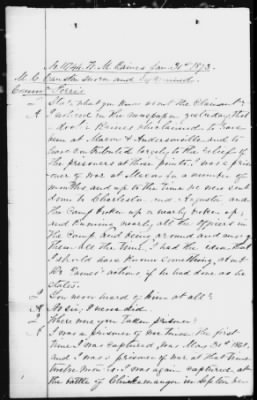 No 11744 H. M. Raines Jan 31st 1873.
M. C. Causten sworn and Examined.
Comr Ferris
Q State what you know about the claimant?
A I noticed in the newspaper yesterday that
Mr. Raines claimed to have
men at Macon & Andersonville and to
have contributed largely to the relief of
the prisoners at these points. I was a prison-
er of war at Macon for a number of
months and up to the time we were sent
down to Charleston and Augusta and
the Camp broken up or nearly broken up;
and knowing nearly all the officers in
the Camp and being around and among
them all the time, I had the idea that
I should have known something about
Mr Raines' actions if he had done as he
states.
Q You never heard of him at all?
A No sir; I never did.
Q Where were you taken prisoner?
A I was a prisoner of war twice. the first
time I was captured, was May 31st 1862.
and I was a prisoner of war at that time
twelve mos. I was again captured at
the battle of Chickamauga in September